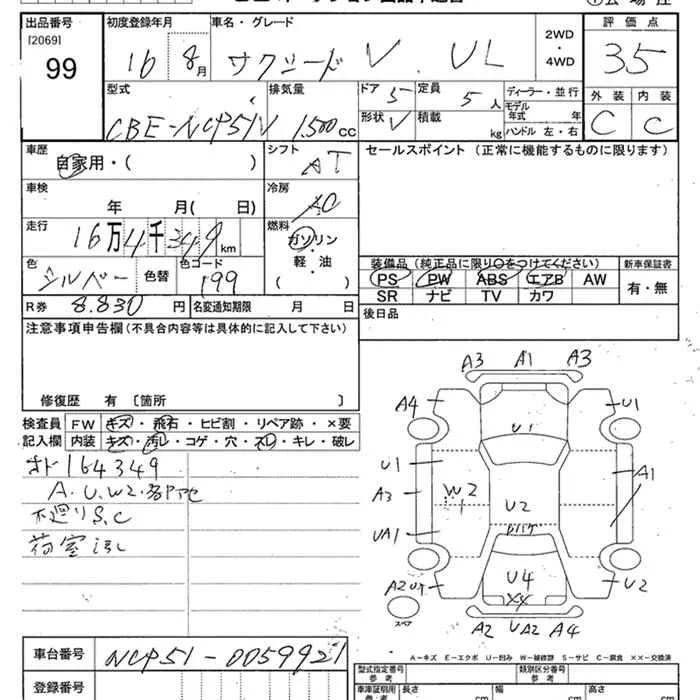 出品番号 初度登録年月 車名・グレード 2WD・4WD 評価点
[2069]
99 16 8月 サクシード V. UL 35
型式 排気量 ドア 5 定員 5人 ディーラー・並行 外装 内装
モデル年式 年
CBE-NCP51V 1,500cc 形状 V 積載 kg ハンドル 左・右 C C
車歴 自家用・( ) シフト AT セールスポイント (正常に機能するものに限ります)
車検 年 月( 日) 冷房 AC
走行 16万4千349km 燃料 ガソリン・軽・油( )
色 シルバー 色替 色コード 199
装備品 (純正品に限り○をつけてください) 新車保証書
PS PW ABS エアB AW 有・無
SR ナビ TV カワ
R券 8.830円 名変通知期限 月 日 後日品
注意事項申告欄(不具合内容等は具体的に記入して下さい)
修復歴 有〔箇所 〕
検査員記入欄 FW キズ・飛石・ヒビ割・リペア跡・×要
内装 キズ・汚レ・コゲ・穴・スレ・キレ・破レ
164349
A.U.W2.
S.C
荷室
A3 A1 A3
A4 U1 U1
U1 A1
A3 W2 U2
UA1
U4
××
A2 U2
スペア
A2 UA2 A4
A―キズ E―エクボ U―凹み W―補修跡 S―サビ C―腐食 ××―交換済
車台番号 NCP51-0059921
登録番号
型式指定番号 参考 類別区分番号 参考
車庫証明用 参考 長さ cm 幅 cm 高さ cm